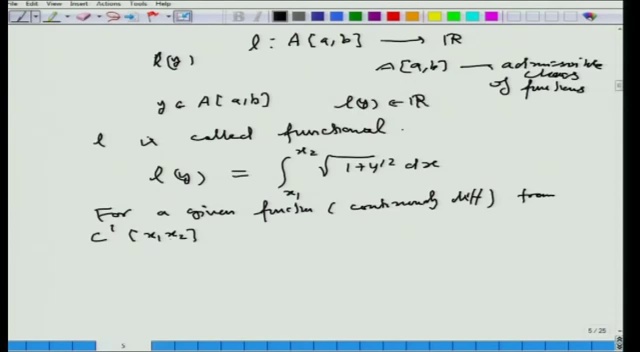 File Edit View Insert Actions Tools Help
l : A[a,b] ⟶ ℝ
l(y)
A[a,b] — admissible class of functions
y ∈ A[a,b] l(y) ∈ ℝ
l is called functional.
l(y) = ∫_{x_1}^{x_2} √(1+y'^2) dx
For a given function (continuously diff) from
C' [x_1 x_2]
5 / 25
5